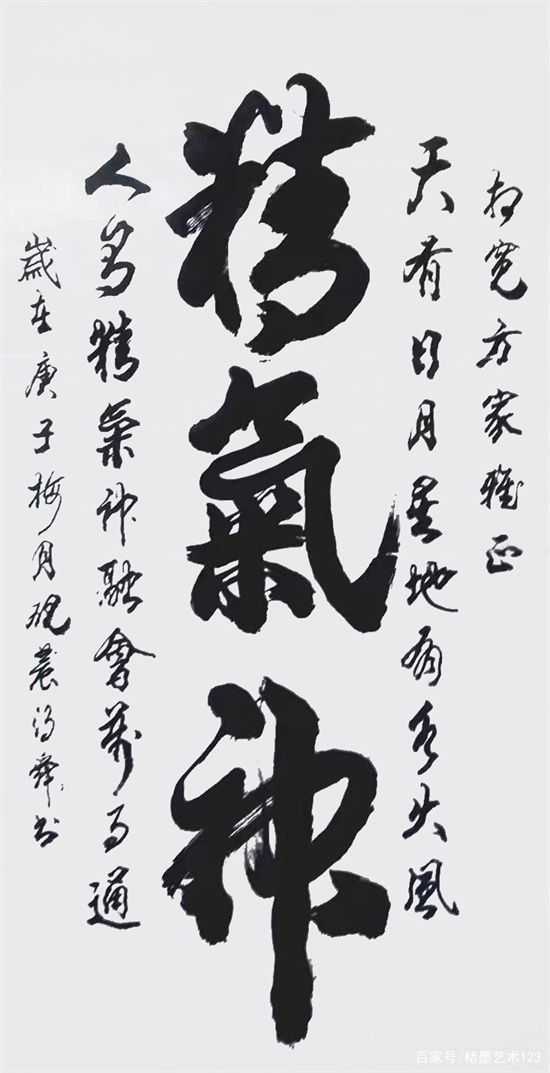 宽方家雅正
天有日月星地有水火風
精氣神
人精氣神融會萬事通
歲在庚子梅月硯農舜書
百家号/楮墨艺术123